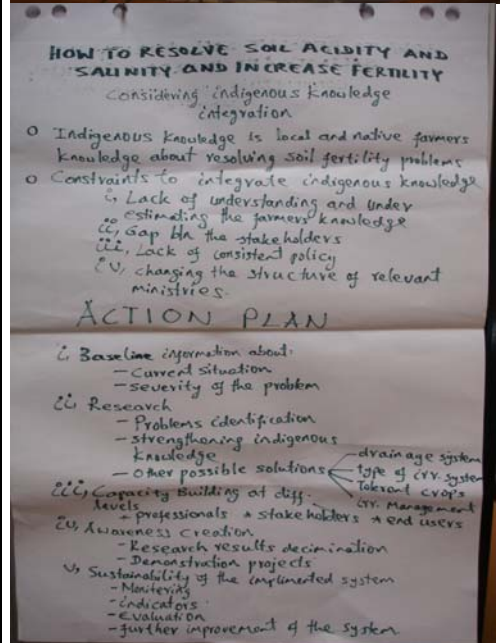 HOW TO RESOLVE SOIL ACIDITY AND
SALINITY AND INCREASE FERTILITY
Considering indigenous knowledge
integration
o Indigenous knowledge is local and native farmers
knowledge about resolving soil fertility problems
o Constraints to integrate indigenous knowledge
i, Lack of understanding and under
estimating the farmers knowledge
ii, Gap btn the stakeholders
iii, Lack of consistent policy
iv, changing the structure of relevant
ministries.
ACTION PLAN
i, Baseline information about:
- Current situation
- severity of the problem
ii, Research
- Problems identification
- strengthening indigenous
knowledge
- Other possible solutions
drainage system
type of irr. system
Tolerant crops
irr. Management
iii, Capacity Building at diff.
levels
+ professionals * stakeholders * end users
iv, Awareness creation
- Research results decimination
- Demonstration projects
v, Sustainability of the implimented system
- Monitering
- indicators
- evaluation
- further improvement of the system.